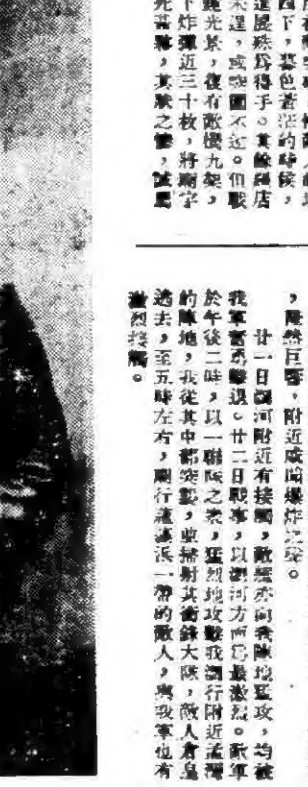 四下，暮色蒼茫的時候，
進展殊爲得手。其餘羅店
未逞，或突圍不。但戰
光景，復有敵機九架，
下炸彈近三十枚，將廟宇
死甚夥，其狀之慘，誠屬
，隆然巨響，附近咸聞爆炸之聲。
廿一日瀏河附近有接觸，敵亦向我陣地猛攻，均被
我軍奮勇擊退。廿二日戰事，以瀏河方面爲最激烈。敵軍
於午後二時，以一聯隊之衆，猛烈地攻擊我瀏行附近孟灣
的陣地，我從其中部突擊，並掃射其衝鋒大隊，敵人倉皇
逃去，至五時左右，劉行蘊藻浜一帶的敵人，與我軍也有
激烈接觸。